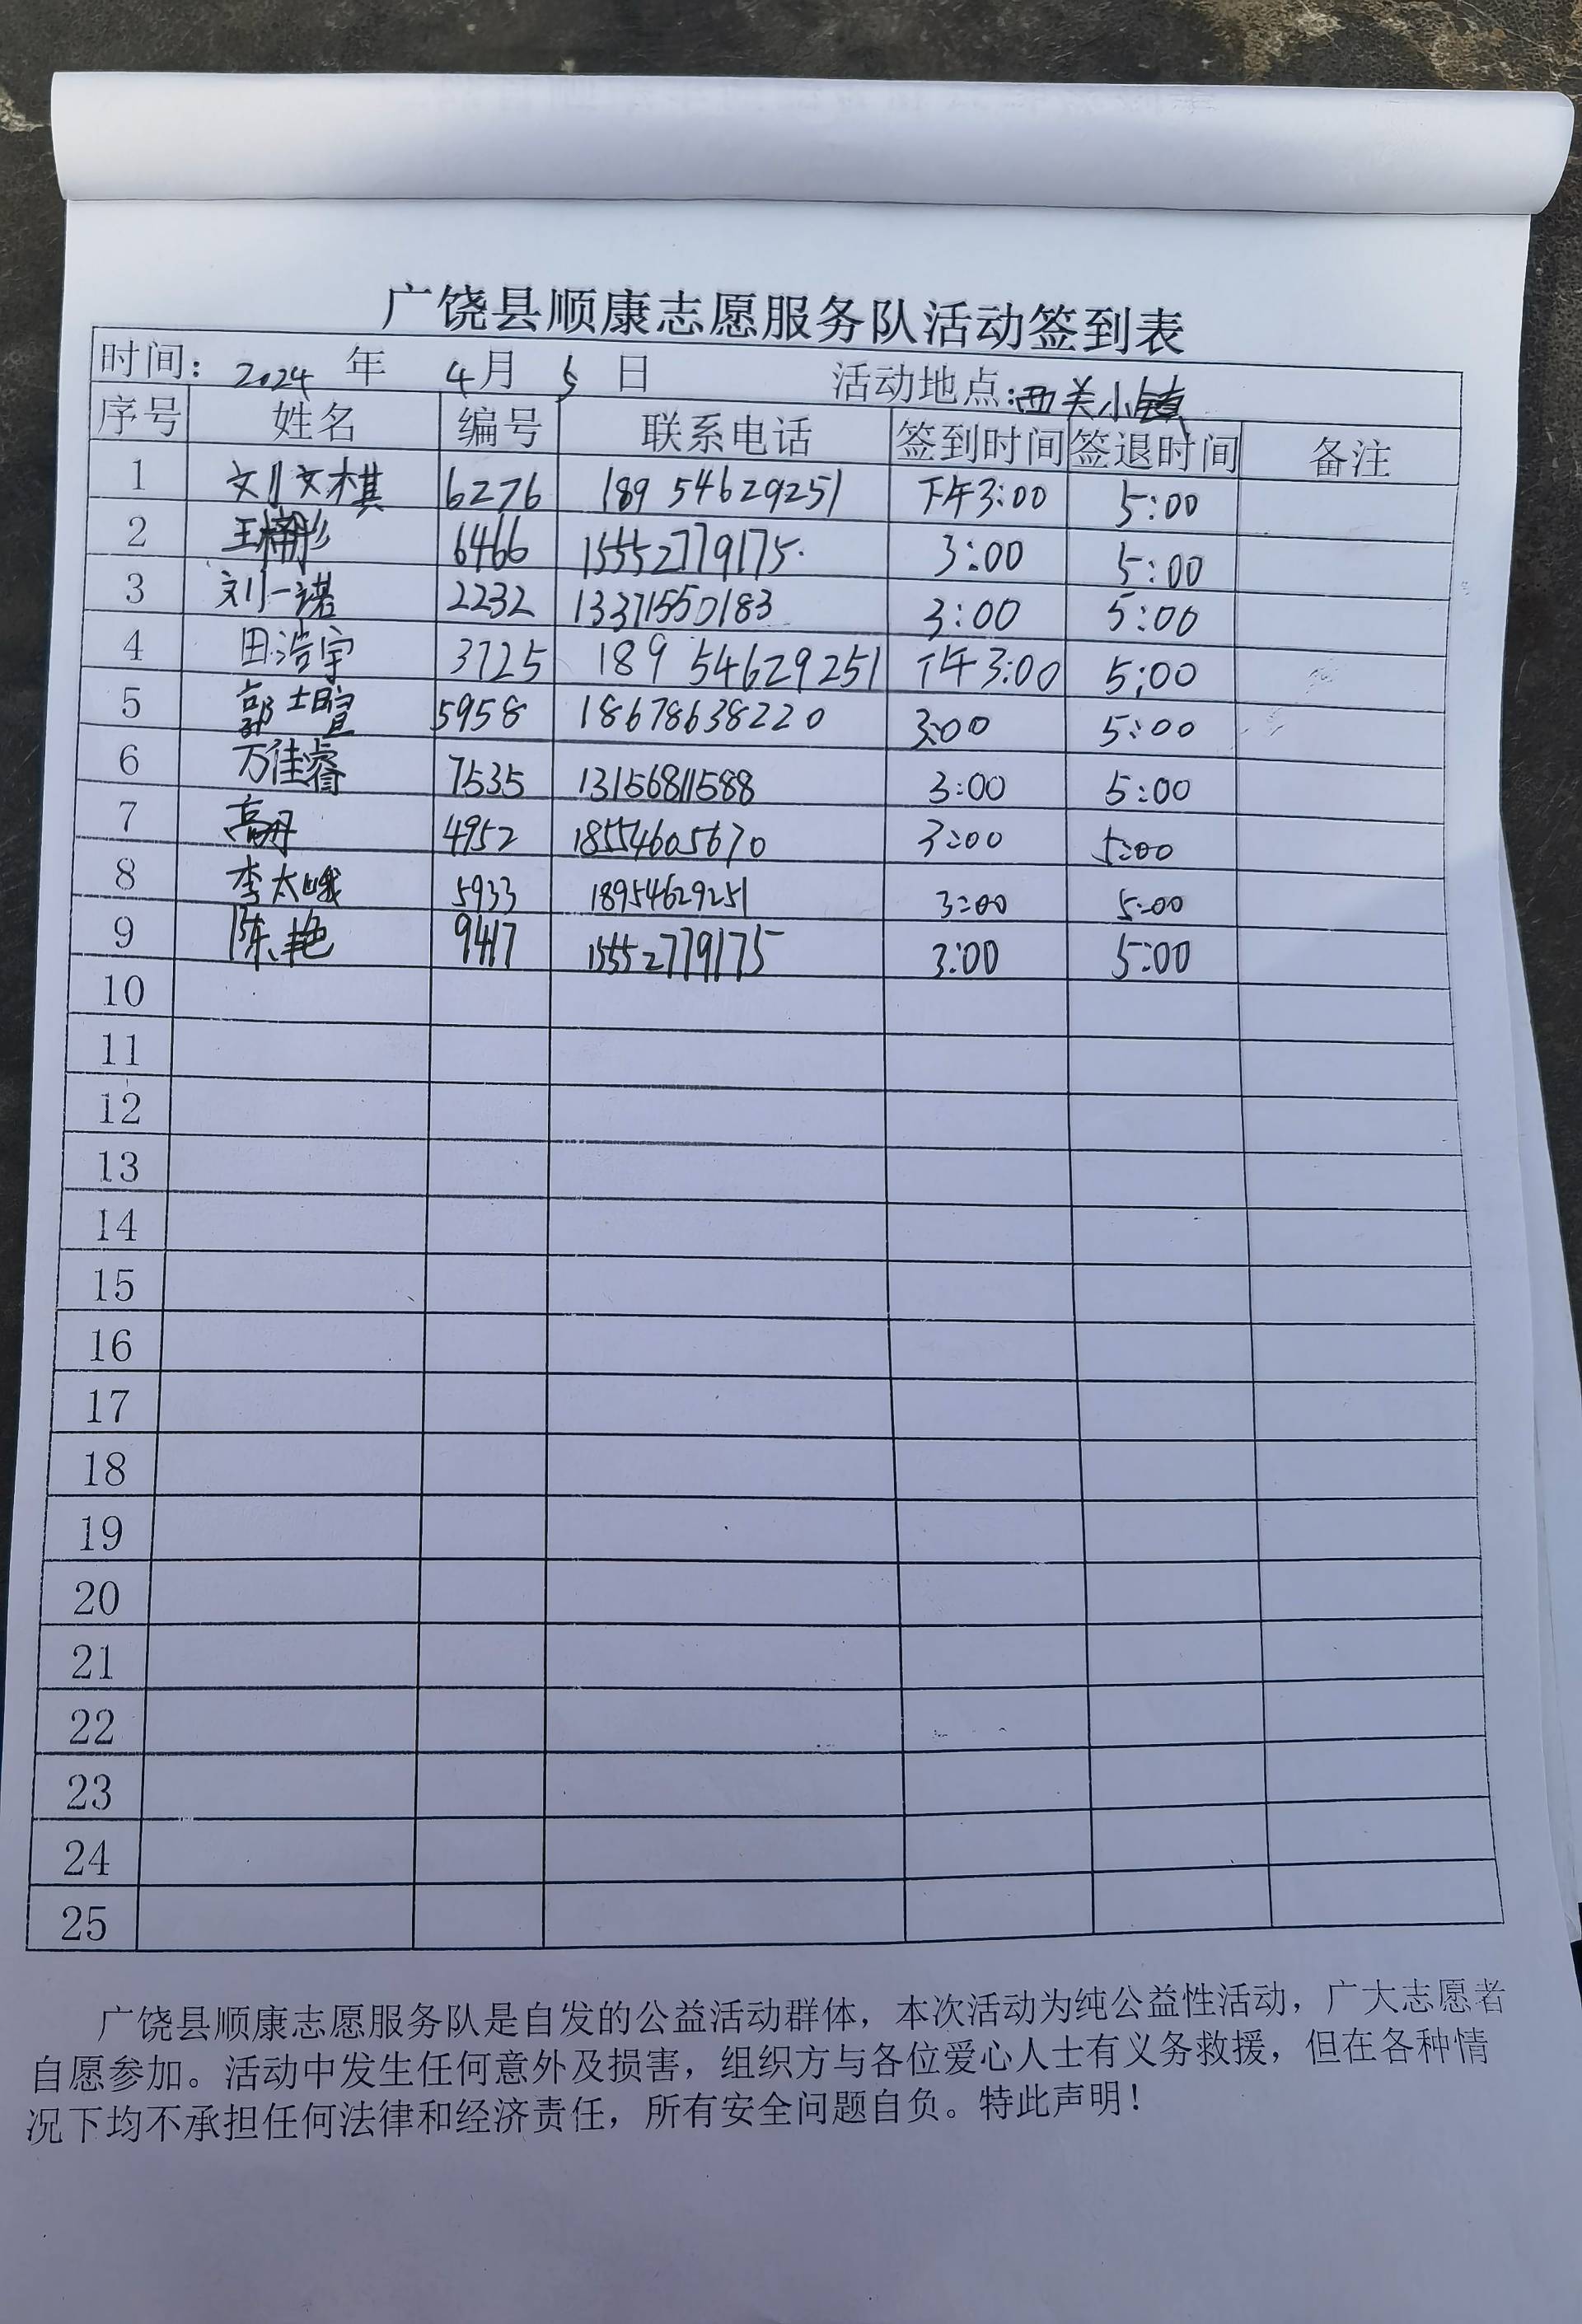 广饶县顺康志愿服务队活动签到表
时间：2024 年 4月 5 日 活动地点：西关小镇
序号 姓名 编号 联系电话 签到时间 签退时间 备注
1 刘文棋 6276 189 54629251 下午3:00 5:00
2 王 6466 15552779175. 3:00 5:00
3 刘一诺 2232 13371550183 3:00 5:00
4 田浩宇 3725 189 54629251 下午3:00 5:00
5 郭士暄 5958 18678638220 3:00 5:00
6 万佳睿 7535 13156811588 3:00 5:00
7 高丹 4952 18554605670 3:00 5:00
8 李太峨 5933 18954629251 3:00 5:00
9 陈艳 9417 15552779175 3:00 5:00
10
11
12
13
14
15
16
17
18
19
20
21
22
23
24
25
广饶县顺康志愿服务队是自发的公益活动群体，本次活动为纯公益性活动，广大志愿者
自愿参加。活动中发生任何意外及损害，组织方与各位爱心人士有义务救援，但在各种情
况下均不承担任何法律和经济责任，所有安全问题自负。特此声明！